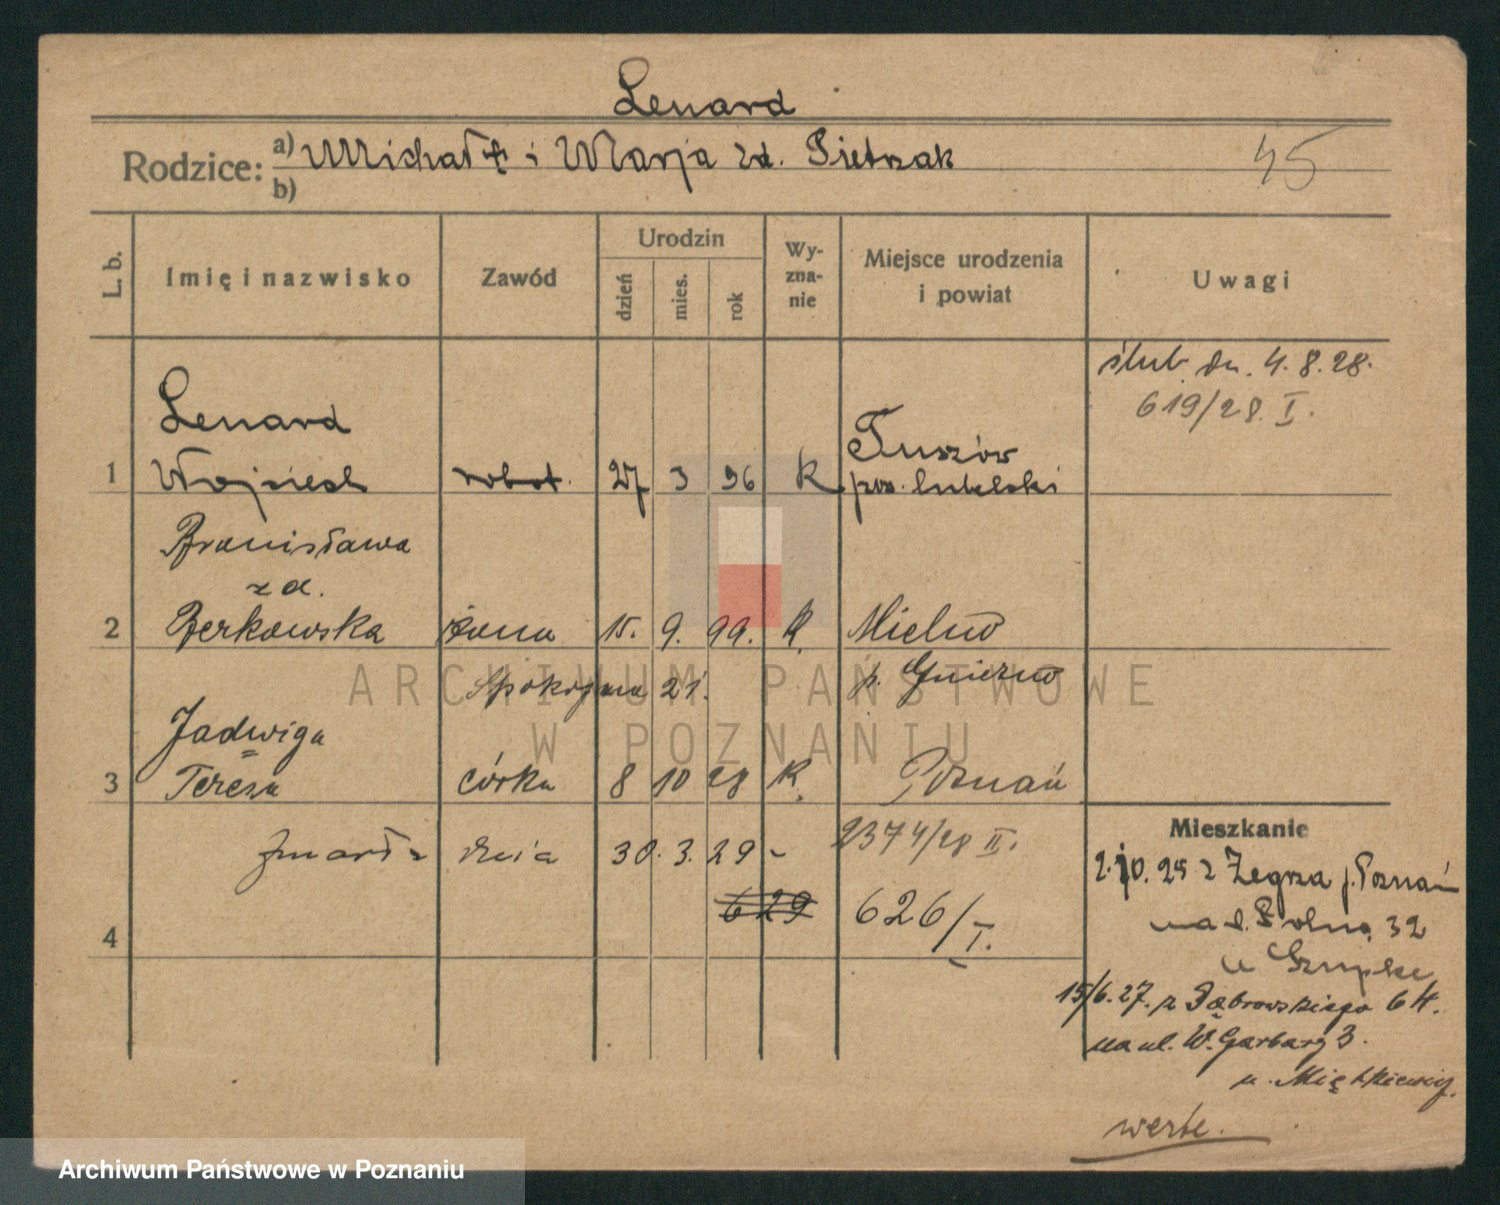 Lenard
Rodzice: a) Michał † i Marja zd. Pietrzak
b)
45
L. b.
Imię i nazwisko
Zawód
Urodzin
dzień
mies.
rok
Wy-
zna-
nie
Miejsce urodzenia
i powiat
Uwagi
ślub dn. 4.8.28.
619/28. I.
Lenard
1 Wojciech robot. 27 3 96 K
Tuszów
pow. lubelski
Bronisława
zd.
2 Berkowska żona 15. 9. 99. K. Mielno
p. Gniezno
Spokojna 21.
Jadwiga
3 Teresa córka 8 10 28 K. Poznań
zmarła dnia 30. 3. 29 - 2374/28 II.
6 29 626/I.
4
Mieszkanie
2.10.25 z Żegrza p. Poznań
na ul. Polną 32
u
15/6.27. z Dąbrowskiego 64.
na ul. W. Garbary 3.
u.
werte.
ARCHIWUM PAŃSTWOWE
W POZNANIU
Archiwum Państwowe w Poznaniu